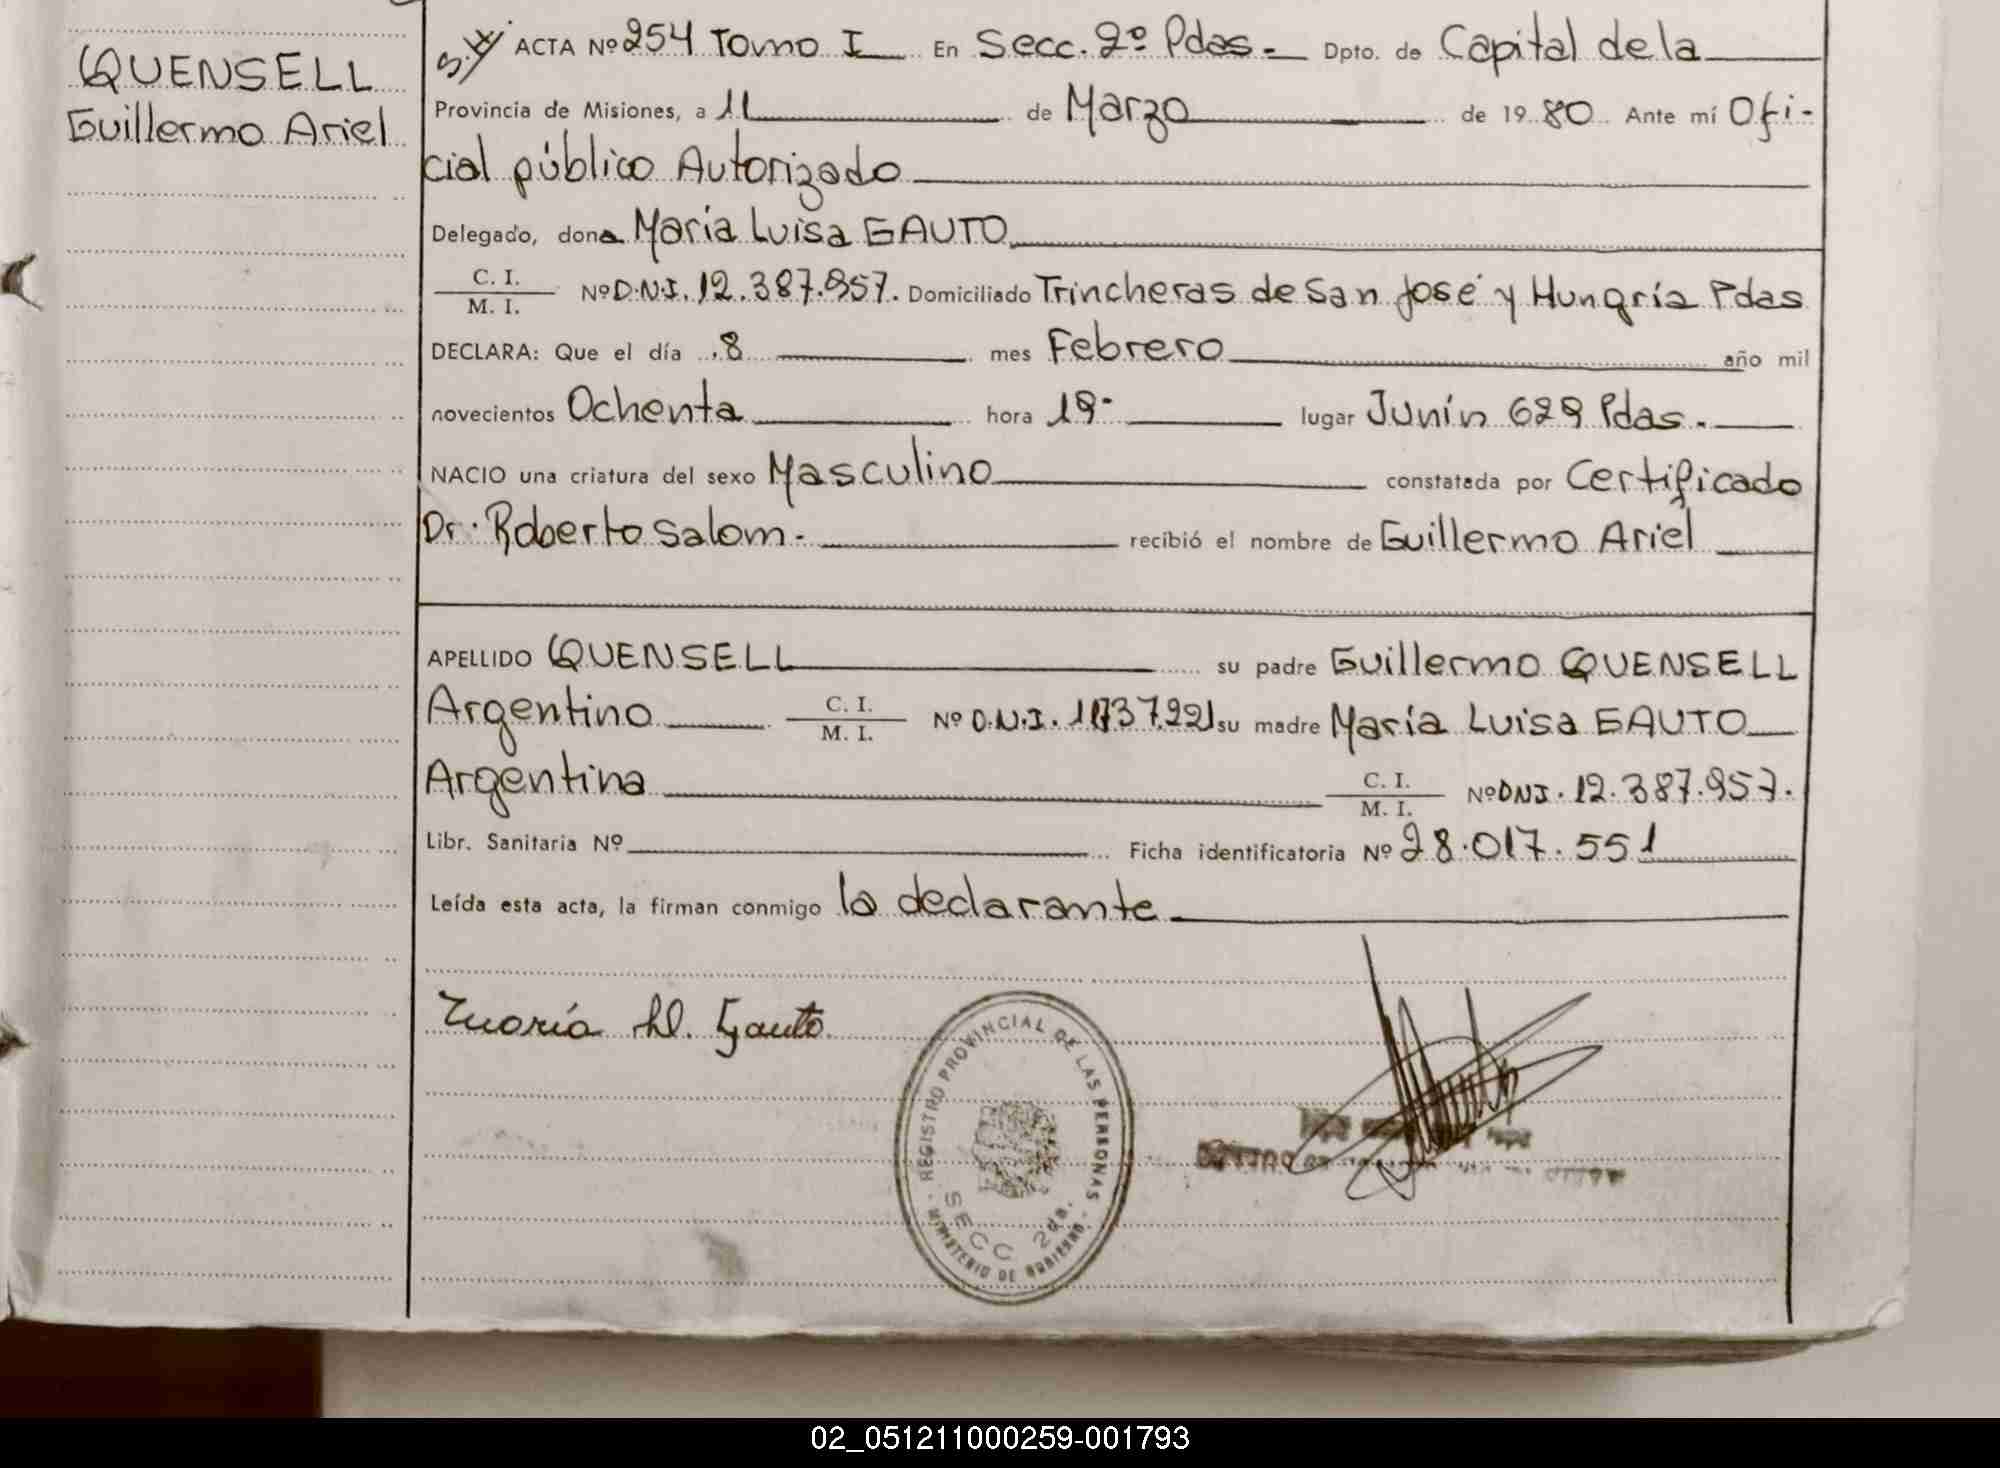 QUENSELL
Guillermo Ariel
S.H ACTA Nº 254 Tomo I En Secc. 2º Pdas.- Dpto. de Capital de la
Provincia de Misiones, a 11 de Marzo de 1980 Ante mí Ofi-
cial público Autorizado
Delegado, dona María Luisa GAUTO
C. I.
M. I. Nº D.N.I. 12.387.957. Domiciliado Trincheras de San José y Hungría Pdas
DECLARA: Que el día 8 mes Febrero año mil
novecientos Ochenta hora 19- lugar Junín 629 Pdas.
NACIO una criatura del sexo Masculino constatada por Certificado
Dr. Roberto Salom.- recibió el nombre de Guillermo Ariel
APELLIDO QUENSELL su padre Guillermo QUENSELL
Argentino C. I.
M. I. Nº D.N.I. su madre María Luisa GAUTO
Argentina C. I.
M. I. Nº DNI. 12.387.957.
Libr. Sanitaria Nº Ficha identificatoria Nº 28.017.551
Leída esta acta, la firman conmigo la declarante
María L. Gauto
REGISTRO PROVINCIAL DE LAS PERSONAS
SECC 2da.
MINISTERIO DE GOBIERNO
02_051211000259-001793